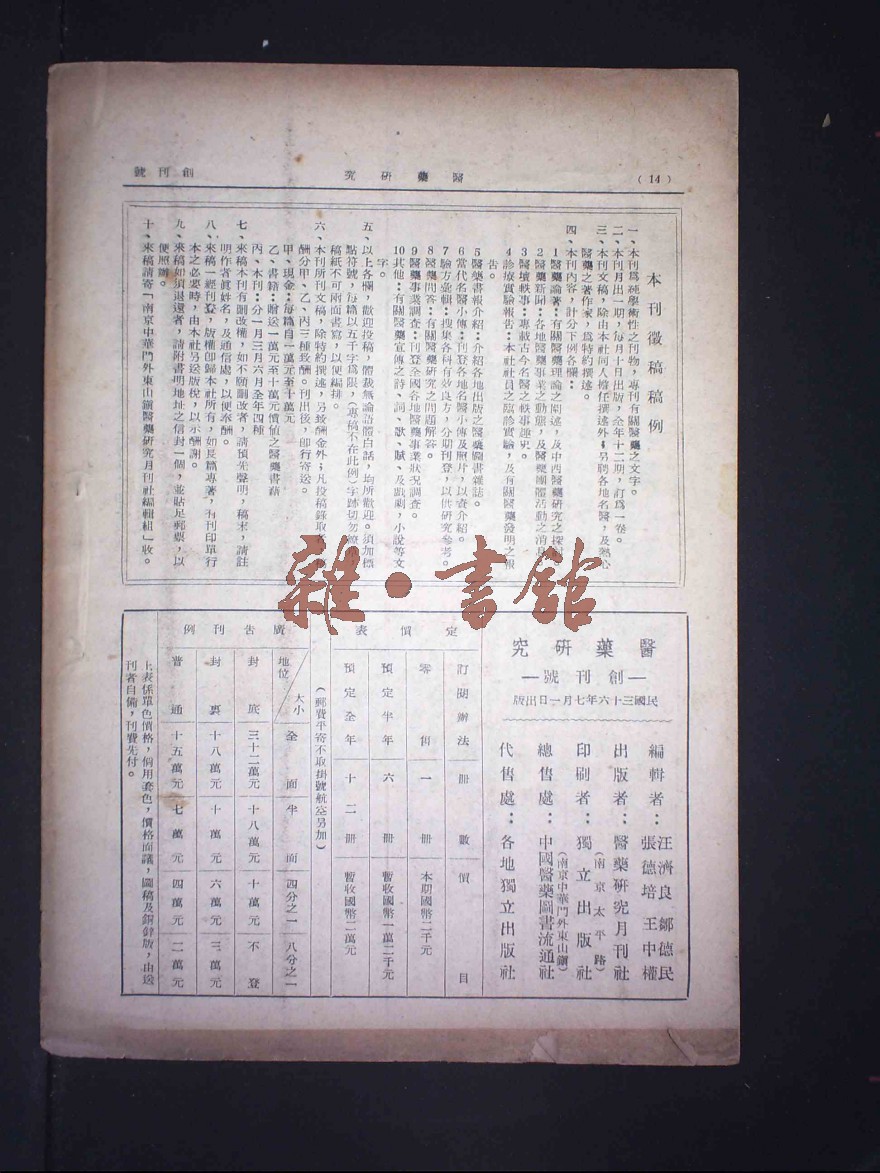 (14)
醫藥研究
創刊號
本刊徵稿稿例
一、本刊爲純學術性之刊物，專刊有關醫藥之文字。
二、本刊月出一期，每月十日出版，全年十二期，訂爲一卷。
三、本刊文稿，除由本社同人擔任撰述外；另聘各地名醫，及熱心
醫藥之著作家，爲特約撰述。
四、本刊內容，計分下例各欄：
1 醫藥論著：有關醫藥理論之闡述，及中西醫藥研究之探討
2 醫藥新聞：各地醫藥事業之動態，及醫藥團體活動之消息
3 醫壇軼事：專載古今名醫之軼事趣史。
4 診療實驗報告：本社社員之臨診實驗，及有關醫藥發明之報
告。
5 醫藥書報介紹：介紹各地出版之醫藥圖書雜誌。
6 當代名醫小傳：刊登各地名醫小傳及照片，以資介紹。
7 驗方彙輯：搜集各科有效良方，分期刊登，以供研究參考。
8 醫藥問答：有關醫藥研究之問題解答。
9 醫藥事業調查：刊登全國各地醫藥事業狀況調查。
10 其他：有關醫藥宣傳之詩、詞、歌、賦、及戲劇，小說等文
字。
五、以上各欄，歡迎投稿，體裁無論語體白話，均所歡迎。須加標
點符號，每篇以五千字爲限，(專稿不在此例)字跡切勿潦
稿紙不可兩面書寫，以便編排。
六、本刊所刊文稿，除特約撰述，另致酬金外；凡投稿錄取
酬分甲、乙、丙三種致酬。刊出後，卽行寄送。
甲、現金：每篇自一萬元至十萬元
乙、書籍：贈送一萬元至十萬元價值之醫藥書籍
丙、本刊：分一月三月六月全年四種
七、來稿本刊有刪改權，如不願刪改者，請預先聲明，稿末，請註
明作者眞姓名，及通信處，以便奉酬。
八、來稿一經刊登，版權卽歸本社所有，如長篇專著，有刊印單行
本之必要時，由本社另送版稅，以示酬謝。
九、來稿如須退還者，請附書明地址之信封一個，並貼足郵票，以
便照辦。
十、來稿請寄「南京中華門外東山鎭醫藥研究月刊社編輯組」收。
雜·書館
醫藥研究
—創刊號—
民國三十六年七月一日出版
編輯者：汪濟良 鄒德民
張德培 王中權
出版者：醫藥研究月刊社
(南京太平路)
印刷者：獨立出版社
(南京中華門外東山鎭)
總售處：中國醫藥圖書流通社
代售處：各地獨立出版社
定價表
訂閱辦法 冊數 價目
零售 一冊 本期國幣二千元
預定半年 六冊 暫收國幣一萬二千元
預定全年 十二冊 暫收國幣二萬元
(郵費平寄不取掛號航空另加)
廣告刊例
地位 大小 全面 半面 四分之一 八分之一
封底 三十二萬元 十八萬元 十萬元 不登
封裏 十八萬元 十萬元 六萬元 三萬元
普通 十五萬元 七萬元 四萬元 二萬元
上表係單色價格，倘用套色，價格面議，圖稿及銅鋅版，由送
刊者自備，刊費先付。